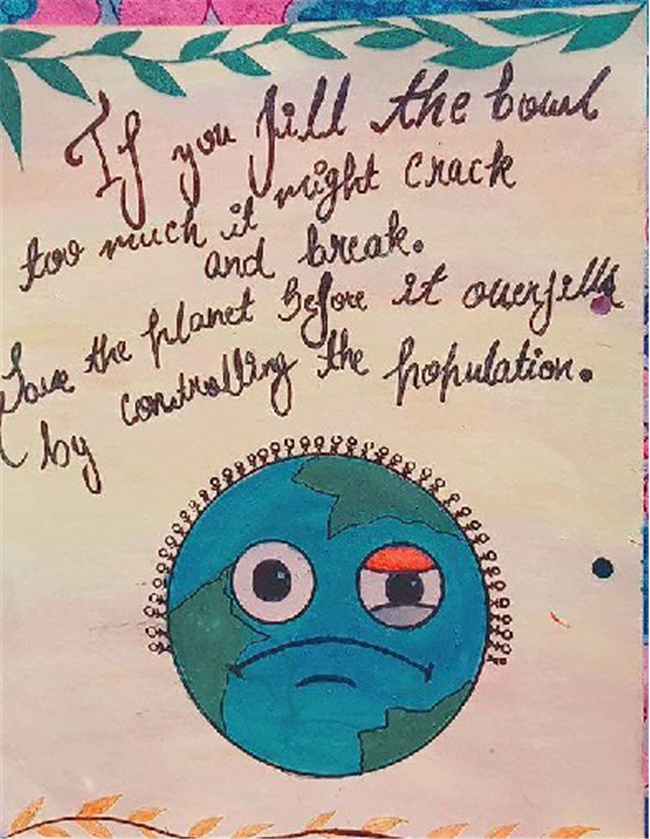 If you fill the bowl
too much it might crack
and break.
Save the planet before it overfills
by controlling the population.